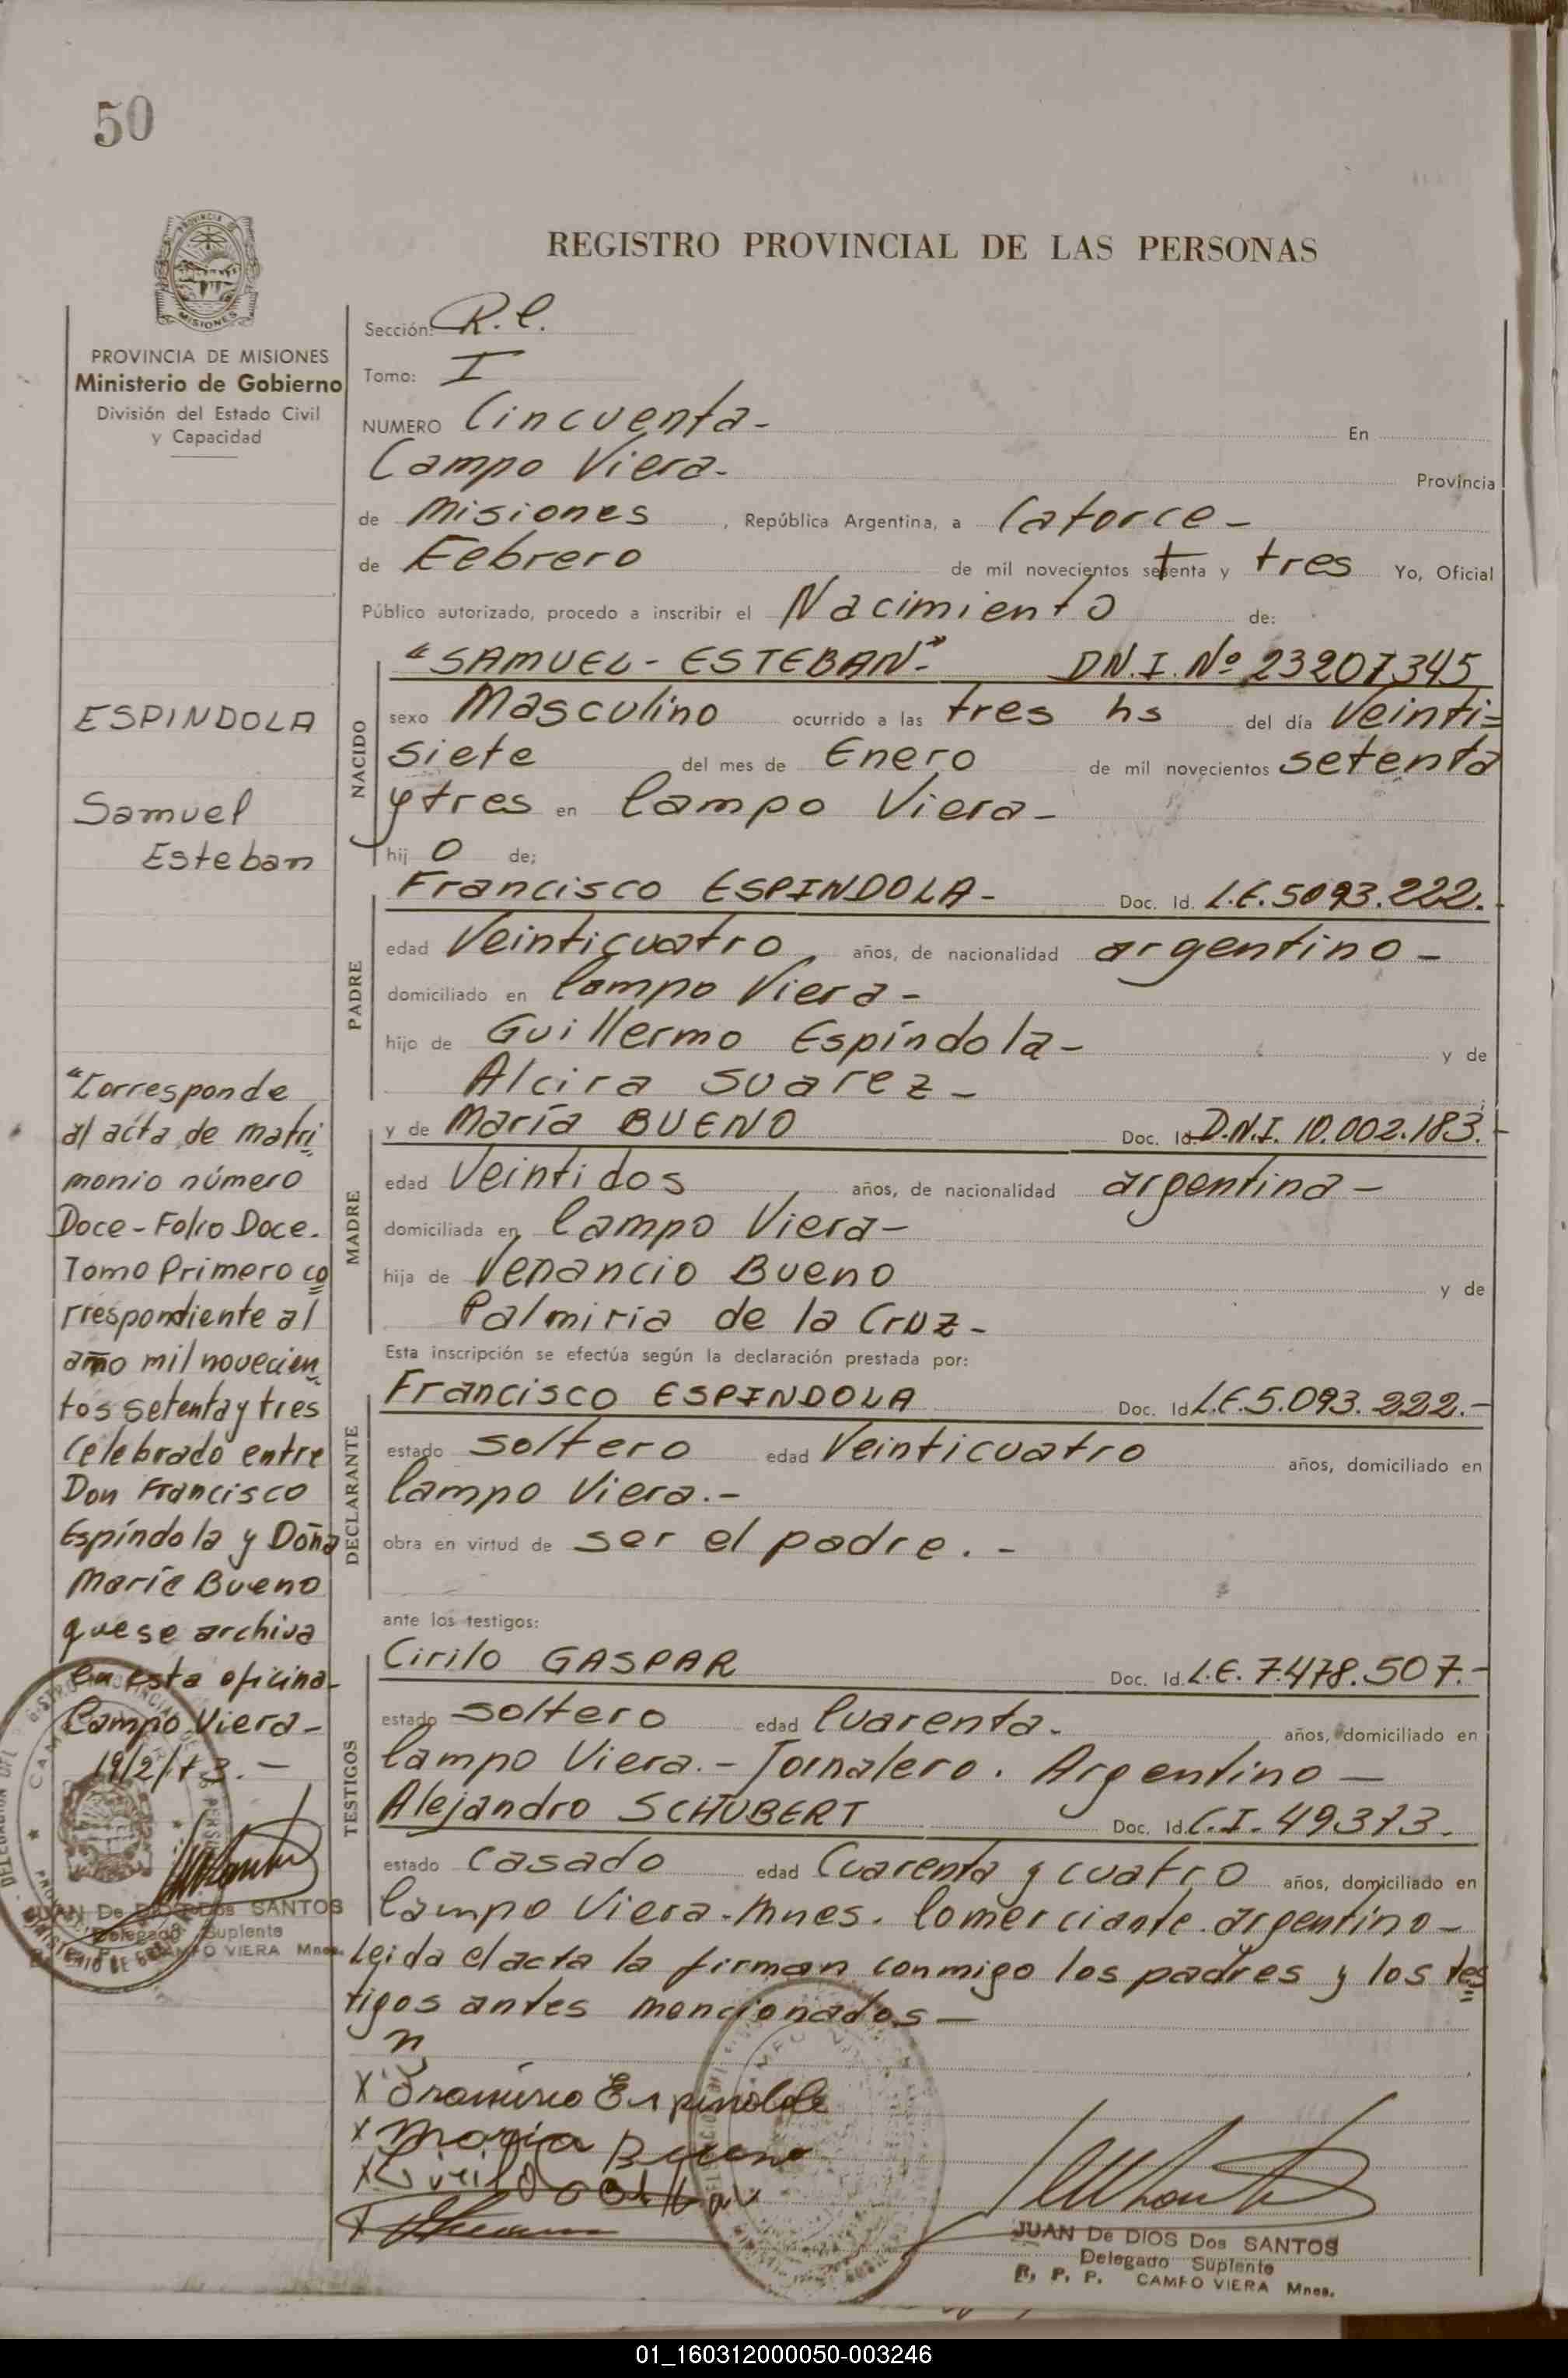 50
REGISTRO PROVINCIAL DE LAS PERSONAS
PROVINCIA DE MISIONES
Ministerio de Gobierno
División del Estado Civil
y Capacidad
ESPINDOLA
Samuel
Esteban
"Corresponde
al acta de matri
monio número
Doce - Folio Doce.
Tomo Primero co
rrespondiente al
año mil novecien
tos setenta y tres
celebrado entre
Don Francisco
Espíndola y Doña
María Bueno
que se archiva
en esta oficina-
Campo Viera-
19/2/73.-
JUAN De DIOS Dos SANTOS
Delegado Suplente
CAMPO VIERA Mnes.
Sección: R.C.
Tomo: I
NUMERO Cincuenta- En
Campo Viera- Provincia
de Misiones , República Argentina, a Catorce-
de Febrero de mil novecientos setenta y tres Yo, Oficial
Público autorizado, procedo a inscribir el Nacimiento de:
NACIDO
"SAMUEL - ESTEBAN"- D.N.I. Nº 23207345
sexo Masculino ocurrido a las tres hs del día Veinti=
siete del mes de Enero de mil novecientos setenta
y tres en Campo Viera-
hij o de;
PADRE
Francisco ESPINDOLA- Doc. Id. L.E. 5093.222.-
edad Veinticuatro años, de nacionalidad argentino-
domiciliado en Campo Viera-
hijo de Guillermo Espíndola- y de
Alcira Suarez-
MADRE
y de María BUENO Doc. Id. D.N.I. 10.002.183.-
edad Veintidos años, de nacionalidad argentina-
domiciliada en Campo Viera-
hija de Venancio Bueno y de
Palmiria de la Cruz-
Esta inscripción se efectúa según la declaración prestada por:
DECLARANTE
Francisco ESPINDOLA Doc. Id. L.E. 5.093.222.-
estado soltero edad Veinticuatro años, domiciliado en
Campo Viera.-
obra en virtud de ser el padre.-
ante los testigos:
TESTIGOS
Cirilo GASPAR Doc. Id. L.E. 7.478.507.-
estado soltero edad Cuarenta- años, domiciliado en
Campo Viera.- Jornalero. Argentino-
Alejandro SCHUBERT Doc. Id. C.I. 49373.
estado casado edad Cuarenta y cuatro años, domiciliado en
Campo Viera-Mnes. Comerciante. argentino-
Leida el acta la firman conmigo los padres y los tes
tigos antes mencionados-
X Francisco Espindola
X Maria Bueno
X Cirilo
X
JUAN De DIOS Dos SANTOS
Delegado Suplente
R. P. P. CAMPO VIERA Mnes.
01_160312000050-003246